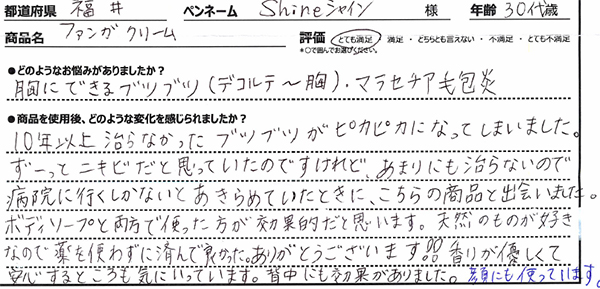 都道府県 福井 ペンネーム Shineシャイン 様 年齢 30代歳
商品名 ファンガクリーム 評価 とても満足 ・ 満足 ・ どちらとも言えない ・ 不満足 ・ とても不満足
※○で囲んでお選びください。
●どのようなお悩みがありましたか？
胸にできるブツブツ(デコルテ〜胸)・マラセチア毛包炎
●商品を使用後、どのような変化を感じられましたか？
10年以上治らなかったブツブツがピカピカになってしまいました。
ずーっとニキビだと思っていたのですけれど、あまりにも治らないので
病院に行くしかないとあきらめていたときに、こちらの商品と出会いました。
ボディソープと両方で使った方が効果的だと思います。天然のものが好き
なので薬を使わずに済んで良かった。ありがとうございます!!香りが優しくて
安心するところも気にいっています。背中にも効果がありました。顔にも使っています。